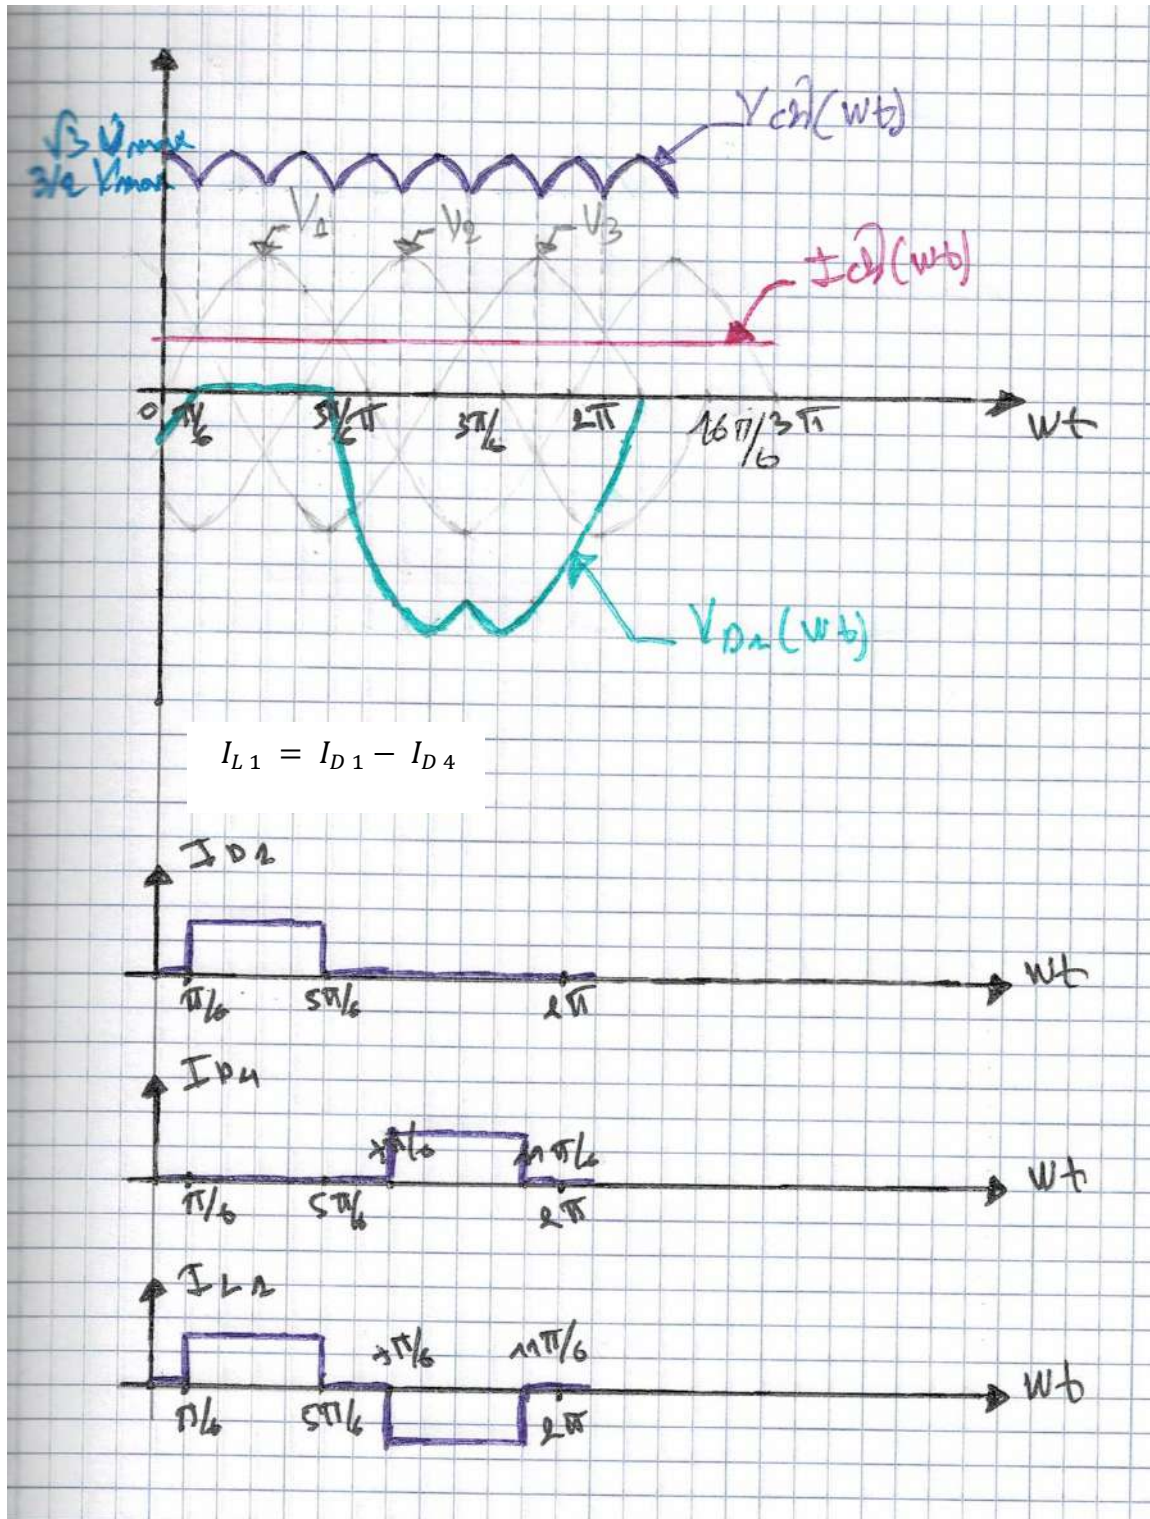 Vch(wt)
√3 Vmax
3/2 Vmax
V1
V2
V3
Ich(wt)
0
π/6
5π/6
3π/6
2π
16π/6
3π
wt
VD1(wt)
I_{L 1} = I_{D 1} − I_{D 4}
ID1
π/6
5π/6
2π
wt
ID4
7π/6
11π/6
π/6
5π/6
2π
wt
IL1
7π/6
11π/6
π/6
5π/6
2π
wt